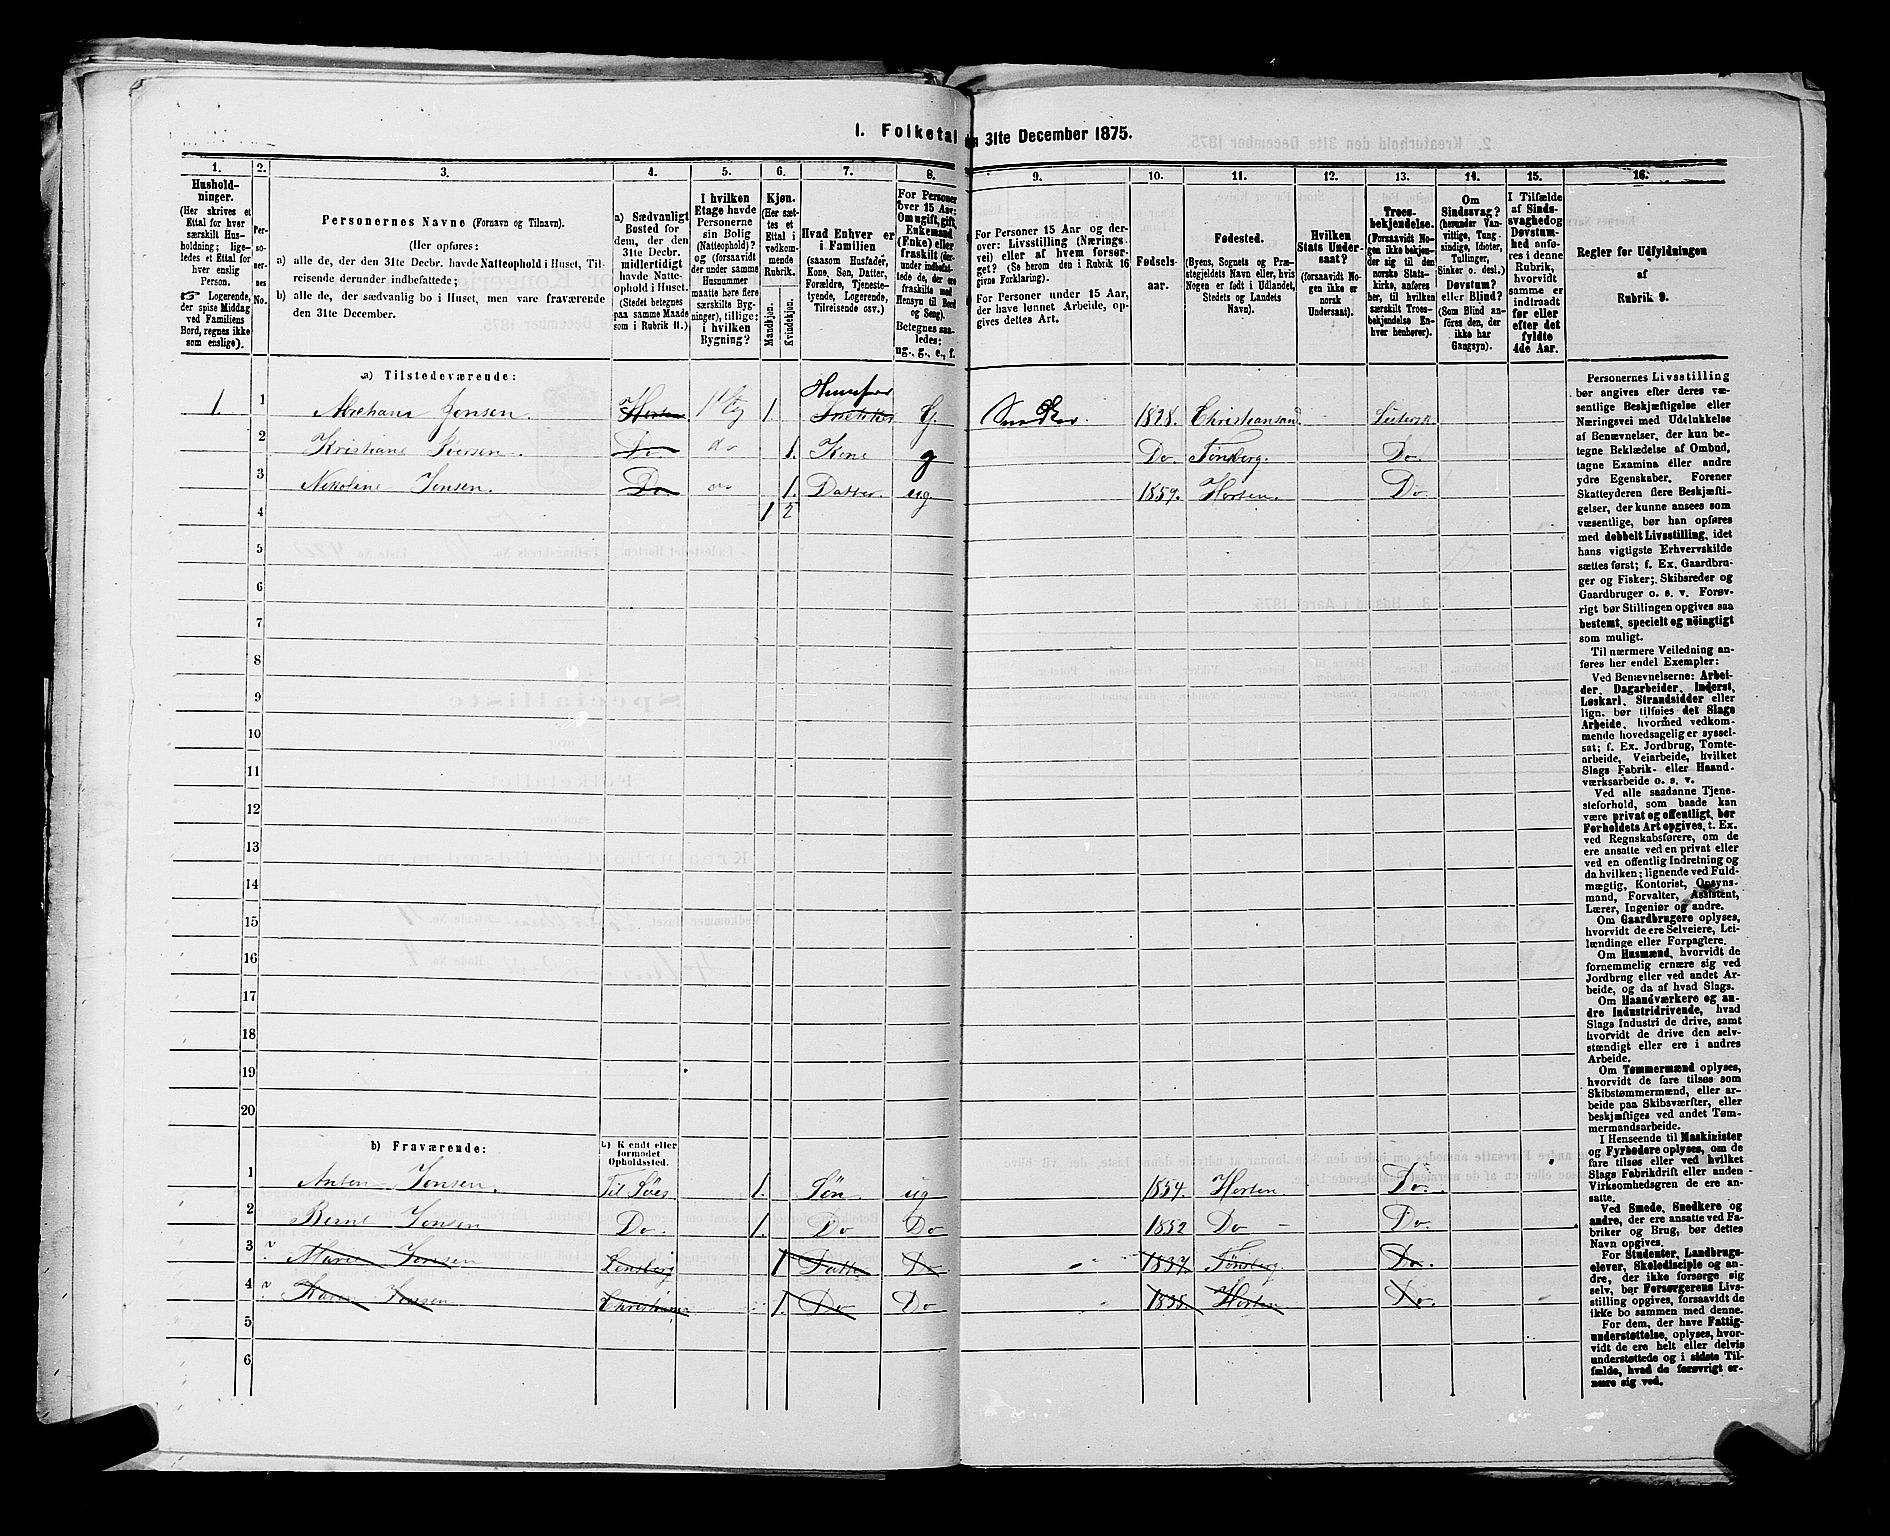 1. Folketal den 31te December 1875.
1. 2. 3. 4. 5. 6. 7. 8. 9. 10. 11. 12. 13. 14. 15. 16.
Hushold-
ninger.
(Her skrives et
Ettal for hver
særskilt Hus-
holdning; lige-
ledes et Ettal for
hver enslig
Person.
Logerende,
der spise Middag
ved Familiens
Bord, regnes ikke
som enslige).
Per-
so-
ner-
nes
No.
Personernes Navne (Fornavn og Tilnavn).
(Her opføres:
a) alle de, der den 31te Decbr. havde Natteophold i Huset, Til-
reisende derunder indbefattede;
b) alle de, der sædvanlig bo i Huset, men vare fraværende
den 31te December.
a) Sædvanligt
Bosted for
dem, der den
31te Decbr.
midlertidigt
havde Natte-
ophold i Huset.
(Stedet betegnes
paa samme Maade
som i Rubrik 11.)
I hvilken
Etage havde
Personerne
sin Bolig
(Natteophold)?
og (forsaavidt
der under samme
Husnummer
maatte høre flere
særskilte Byg-
ninger), tillige:
i hvilken
Bygning?
Kjøn.
(Her sæt-
tes et
Ettal i
vedkom-
mende
Rubrik.
Mandkjøn.
Kvindekjøn.
Hvad Enhver er
i Familien
(saasom Husfader,
Kone, Søn, Datter,
Forældre, Tjeneste-
tyende, Logerende,
Tilreisende osv.)
For Personer
over 15 Aar:
Om ugift, gift,
Enkemand
(Enke) eller
fraskilt (der-
under indbefat-
tede de, der ere
fraskilte med
Hensyn til Bord
og Seng).
Betegnes saa-
ledes:
ug., g., e., f.
For Personer 15 Aar og der-
over: Livsstilling (Nærings-
vei) eller af hvem forsør-
get? (Se herom den i Rubrik 16
givne Forklaring).
For Personer under 15 Aar,
der have lønnet Arbeide, op-
gives dettes Art.
Fødsels-
aar.
Fødested.
(Byens, Sognets og Præ-
stegjeldets Navn eller, hvis
Nogen er født i Udlandet,
Stedets og Landets
Navn).
Hvilken
Stats Under-
saat?
(forsaavidt No-
gen ikke er
norsk
Undersaat).
Troes-
bekjendelse.
(Forsaavidt No-
gen ikke bekjen-
der sig til den
norske Stats-
kirke, anføres
her, til hvilken
særskilt Troes-
bekjendelse En-
hver henhører).
Om
Sindssvag?
(herunder Van-
vittige, Tung-
sindige, Idioter,
Tullinger,
Sinker o. desl.)
Døvstum?
eller Blind?
(Som Blind an-
føres den, der
ikke har
Gangsyn).
I Tilfælde
af Sinds-
svaghed og
Døvstum-
hed anfø-
res i denne
Rubrik,
hvorvidt
samme er
indtraadt
før eller
efter det
fyldte
4de Aar.
Regler for Udfyldningen
af
Rubrik 9.
a) Tilstedeværende:
1 1 Abraham Jonsen Horten 1ste Etg 1. Huusfar Snekker G. Snedker 1828. Christiansand Luthersk
2 Kristiane Iversen Do do 1. Kone g Do. Tønsberg. Do.
3 Nikoline Jonsen. Do do 1. Datter. ug 1859. Horten. Do
4 1 2
5
6
7
8
9
10
11
12
13
14
15
16
17
18
19
20
b) Fraværende:
b) Kjendt eller
formodet
Opholdssted.
1 Anton Jonsen. Til Søes 1. Søn ug 1854. Horten Do.
2 Bernt Jonsen Do. 1. Do Do 1852 Do Do.
3 Marie Jonsen 1 Datter Do Tønsberg Do.
4 Karen Jonsen Christiania 1. Do Do Horten Do.
5
6
Personernes Livsstilling
bør angives efter deres væ-
sentlige Beskjæftigelse eller
Næringsvei med Udelukkelse
af Benævnelser, der kun be-
tegne Beklædelse af Ombud,
tagne Examina eller andre
ydre Egenskaber. Forener
Skatteyderen flere Beskjæfti-
gelser, der kunne ansees som
væsentlige, bør han opføres
med dobbelt Livsstilling, idet
hans vigtigste Erhvervskilde
sættes først; f. Ex. Gaardbru-
ger og Fisker; Skibsreder og
Gaardbruger o. s. v. Forøv-
rigt bør Stillingen opgives saa
bestemt, specielt og nøiagtigt
som muligt.
Til nærmere Veiledning an-
føres her endel Exempler:
Ved Benævnelserne: Arbei-
der, Dagarbeider, Inderst,
Løskarl, Strandsidder eller
lign. bør tilføies det Slags
Arbeide, hvormed vedkom-
mende hovedsagelig er syssel-
sat; f. Ex. Jordbrug, Tomte-
arbeide, Veiarbeide, hvilket
Slags Fabrik- eller Haand-
værksarbeide o. s. v.
Ved alle saadanne Tjene-
steforhold, som baade kan
være privat og offentligt, bør
Forholdets Art opgives, t. Ex.
ved Regnskabsførere, om de
ere ansatte ved en privat eller
ved en offentlig Indretning og
da hvilken; lignende ved Fuld-
mægtig, Kontorist, Opsyns-
mand, Forvalter, Assistent,
Lærer, Ingeniør og andre.
Om Gaardbrugere oplyses,
hvorvidt de ere Selveiere, Lei-
lændinge eller Forpagtere.
Om Husmænd, hvorvidt de
fornemmelig ernære sig ved
Jordbrug eller ved andet Ar-
beide, og da af hvad Slags.
Om Haandværkere og an-
dre Industridrivende, hvad
Slags Industri de drive, samt
hvorvidt de drive den selv-
stændigt eller ere i andres
Arbeide.
Om Tømmermænd oplyses,
hvorvidt de fare tilsøs som
Skibstømmermænd, eller ar-
beide paa Skibsværfter, eller
beskjæftiges ved andet Tøm-
mermandsarbeide.
I Henseende til Maskinister
og Fyrbødere oplyses, om de
fare tilsøs eller ved hvilket
Slags Fabrikdrift eller anden
Virksomhedsgren de ere an-
satte.
Ved Smede, Snedkere og
andre, der ere ansatte ved Fa-
briker og Brug, bør dettes
Navn opgives.
For Studenter, Landbrugs-
elever, Skoledisciple og an-
dre, der ikke forsørge sig
selv, bør Forsørgerens Livs-
stilling opgives, forsaavidt de
ikke bo sammen med denne.
For dem, der have Fattig-
understøttelse, oplyses, hvor-
vidt de ere helt eller delvis
understøttede og i sidste Til-
fælde, hvad de forøvrigt er-
nære sig ved.